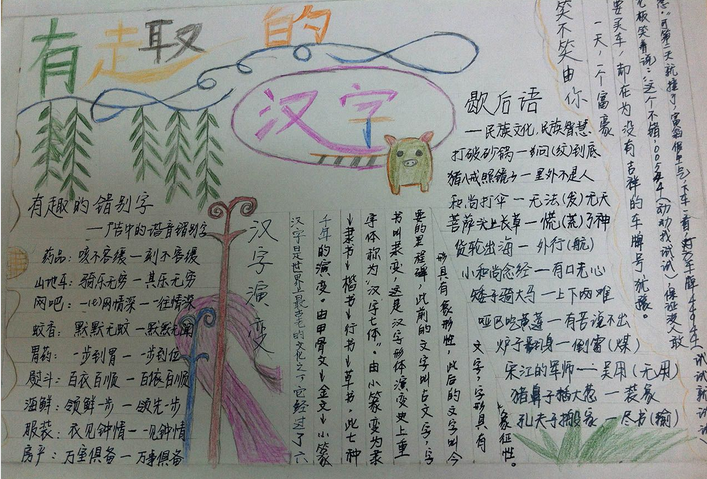 有趣的
汉字
有趣的错别字
—广告中的谐音错别字
药品：咳不容缓—刻不容缓
山地车：骑乐无穷—其乐无穷
网吧：一(e)网情深—往情深
蚊香：默默无蚊—默默无闻
胃药：一步到胃—一步到位
熨斗：百衣百顺—百依百顺
海鲜：领鲜一步—领先一步
服装：衣见钟情—一见钟情
房产：万室俱备—万事俱备
汉字演变
汉字是世界上最古老的文化之一，它经过了六
千年的演变。由甲骨文↓金文↓小篆
↓隶书↓楷书↓行书↓草书，此七种
字体称为“汉字七体”。由小篆变为隶
书叫隶变。这是汉字形体演变史上重
要的里程碑，此前的文字叫古文字，字
形具有象形性，此后的文字叫今
文字，字形具有
象征性。
歇后语
—民族文化，民族智慧
打破砂锅—问(纹)到底
猪八戒照镜子—里外不是人
和尚打伞—无法(发)无天
菩萨头上长草—慌(荒)了神
货轮出海—外行(航)
小和尚念经—有口无心
矮子骑大马—上下两难
哑巴吃黄莲—有苦说不出
炉子翻身—倒霉(煤)
宋江的军师—吴用(无用)
猪鼻子插大葱—装象
孔夫子搬家—尽书(输)
笑不笑由你
一天，一个富豪
要买车，却在为没有吉祥的车牌号犹豫。
老板笑着说：“这个不错：00544(动动我试试)，保证没人敢